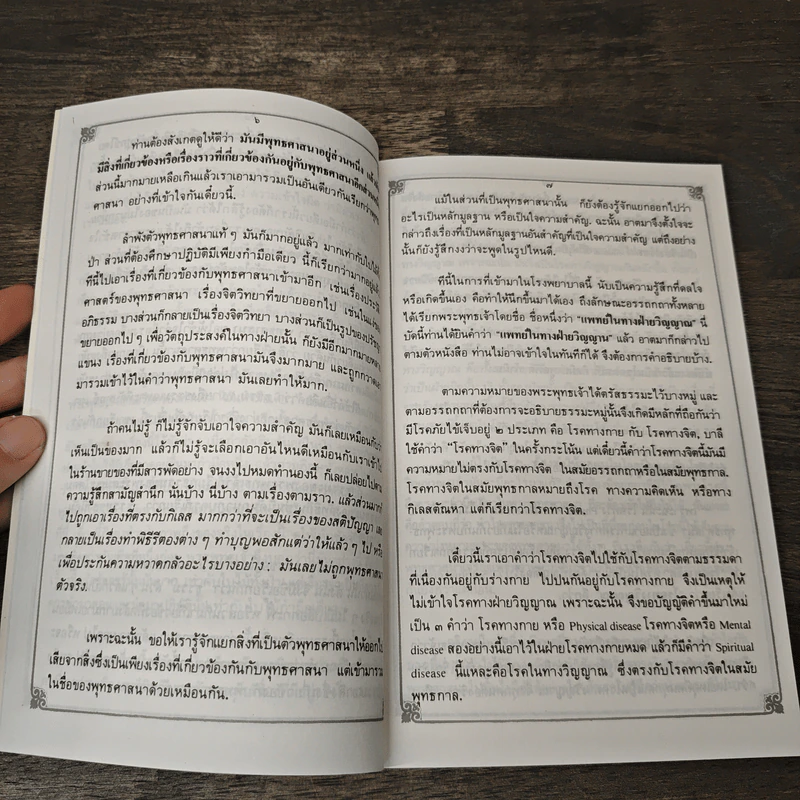 ๖
ท่านต้องสังเกตดูให้ดีว่า มันมีพุทธศาสนาอยู่ส่วนหนึ่ง แล้วมัน
มีสิ่งที่เกี่ยวข้องหรือเรื่องราวที่เกี่ยวข้องกันอยู่กับพุทธศาสนาอีกส่วนหนึ่ง
ส่วนนี้มากมายเหลือเกินแล้วเราเอามารวมเป็นอันเดียวกันเรียกว่าพุทธ
ศาสนา อย่างที่เข้าใจกันเดี๋ยวนี้.
ลำพังตัวพุทธศาสนาแท้ ๆ มันก็มากอยู่แล้ว มากเท่ากับใบไม้ทั้ง
ป่า ส่วนที่ต้องศึกษาปฏิบัติมีเพียงกำมือเดียว นี้ก็เรียกว่ามากอยู่แล้ว
ที่นี้ไปเอาเรื่องที่เกี่ยวข้องกับพุทธศาสนาเข้ามาอีก เช่นเรื่องประวัติ
ศาสตร์ของพุทธศาสนา เรื่องจิตวิทยาที่ขยายออกไป เช่นในแง่ของ
อภิธรรม บางส่วนก็กลายเป็นเรื่องจิตวิทยา บางส่วนก็เป็นรูปของปรัชญา
ขยายออกไป ๆ เพื่อวัตถุประสงค์ในทางฝ่ายนั้น ก็ยังมีอีกมากมายหลาย
แขนง เรื่องที่เกี่ยวข้องกับพุทธศาสนามันจึงมากมาย และถูกกวาดเอา
มารวมเข้าไว้ในคำว่าพุทธศาสนา มันเลยทำให้มาก.
ถ้าคนไม่รู้ ก็ไม่รู้จักจับเอาใจความสำคัญ มันก็เลยเหมือนกับว่า
เห็นเป็นของมาก แล้วก็ไม่รู้จะเลือกเอาอันไหนดีเหมือนกับเราเข้าไป
ในร้านขายของที่มีสารพัดอย่าง จนงงไปหมดทำนองนี้ ก็เลยปล่อยไปตาม
ความรู้สึกสามัญสำนึก นั่นบ้าง นี่บ้าง ตามเรื่องตามราว. แล้วส่วนมากก็
ไปถูกเอาเรื่องที่ตรงกับกิเลส มากกว่าที่จะเป็นเรื่องของสติปัญญา เลย
กลายเป็นเรื่องทำพิธีรีตองต่าง ๆ ทำบุญพอสักแต่ว่าให้แล้ว ๆ ไป หรือ
เพื่อประกันความหวาดกลัวอะไรบางอย่าง : มันเลยไม่ถูกพุทธศาสนา
ตัวจริง.
เพราะฉะนั้น ขอให้เรารู้จักแยกสิ่งที่เป็นตัวพุทธศาสนาให้ออกไป
เสียจากสิ่งซึ่งเป็นเพียงเรื่องที่เกี่ยวข้องกันกับพุทธศาสนา แต่เข้ามารวม
ในชื่อของพุทธศาสนาด้วยเหมือนกัน.
๗
แม้ในส่วนที่เป็นพุทธศาสนานั้น ก็ยังต้องรู้จักแยกออกไปว่า
อะไรเป็นหลักมูลฐาน หรือเป็นใจความสำคัญ. ฉะนั้น อาตมาจึงตั้งใจจะ
กล่าวถึงเรื่องที่เป็นหลักมูลฐานอันสำคัญที่เป็นใจความสำคัญ แต่ถึงอย่าง
นั้นก็ยังรู้สึกงงว่าจะพูดในรูปไหนดี.
ที่นี้ในการที่เข้ามาในโรงพยาบาลนี้ นับเป็นความรู้สึกที่ดลใจ
หรือเกิดขึ้นเอง คือทำให้นึกขึ้นมาได้เอง ถึงลักษณะอรรถกถาทั้งหลาย
ได้เรียกพระพุทธเจ้าโดยชื่อ ชื่อหนึ่งว่า "แพทย์ในทางฝ่ายวิญญาณ" นี่
บัดนี้ท่านได้ยินคำว่า "แพทย์ในทางฝ่ายวิญญาณ" แล้ว อาตมาก็กล่าวไป
ตามตัวหนังสือ ท่านไม่อาจเข้าใจในทันทีก็ได้ จึงต้องการคำอธิบายบ้าง.
ตามความหมายของพระพุทธเจ้าได้ตรัสธรรมะไว้บางหมู่ และ
ตามอรรถกถาที่ต้องการจะอธิบายธรรมะหมู่นั้นจึงเกิดมีหลักที่ถือกันว่า
มีโรคภัยไข้เจ็บอยู่ ๒ ประเภท คือ โรคทางกาย กับ โรคทางจิต, บาลี
ใช้คำว่า "โรคทางจิต" ในครั้งกระโน้น แต่เดี๋ยวนี้คำว่าโรคทางจิตนี้มันมี
ความหมายไม่ตรงกับโรคทางจิต ในสมัยอรรถกถาหรือในสมัยพุทธกาล.
โรคทางจิตในสมัยพุทธกาลหมายถึงโรค ทางความคิดเห็น หรือทาง
กิเลสตัณหา แต่ก็เรียกว่าโรคทางจิต.
เดี๋ยวนี้เราเอาคำว่าโรคทางจิตไปใช้กับโรคทางจิตตามธรรมดา
ที่เนื่องกันอยู่กับร่างกาย ไปปนกันอยู่กับโรคทางกาย จึงเป็นเหตุให้
ไม่เข้าใจโรคทางฝ่ายวิญญาณ เพราะฉะนั้น จึงขอบัญญัติคำขึ้นมาใหม่
เป็น ๓ คำว่า โรคทางกาย หรือ Physical disease โรคทางจิตหรือ Mental
disease สองอย่างนี้เอาไว้ในฝ่ายโรคทางกายหมด แล้วก็มีคำว่า Spiritual
disease นี้แหละคือโรคในทางวิญญาณ ซึ่งตรงกับโรคทางจิตในสมัย
พุทธกาล.